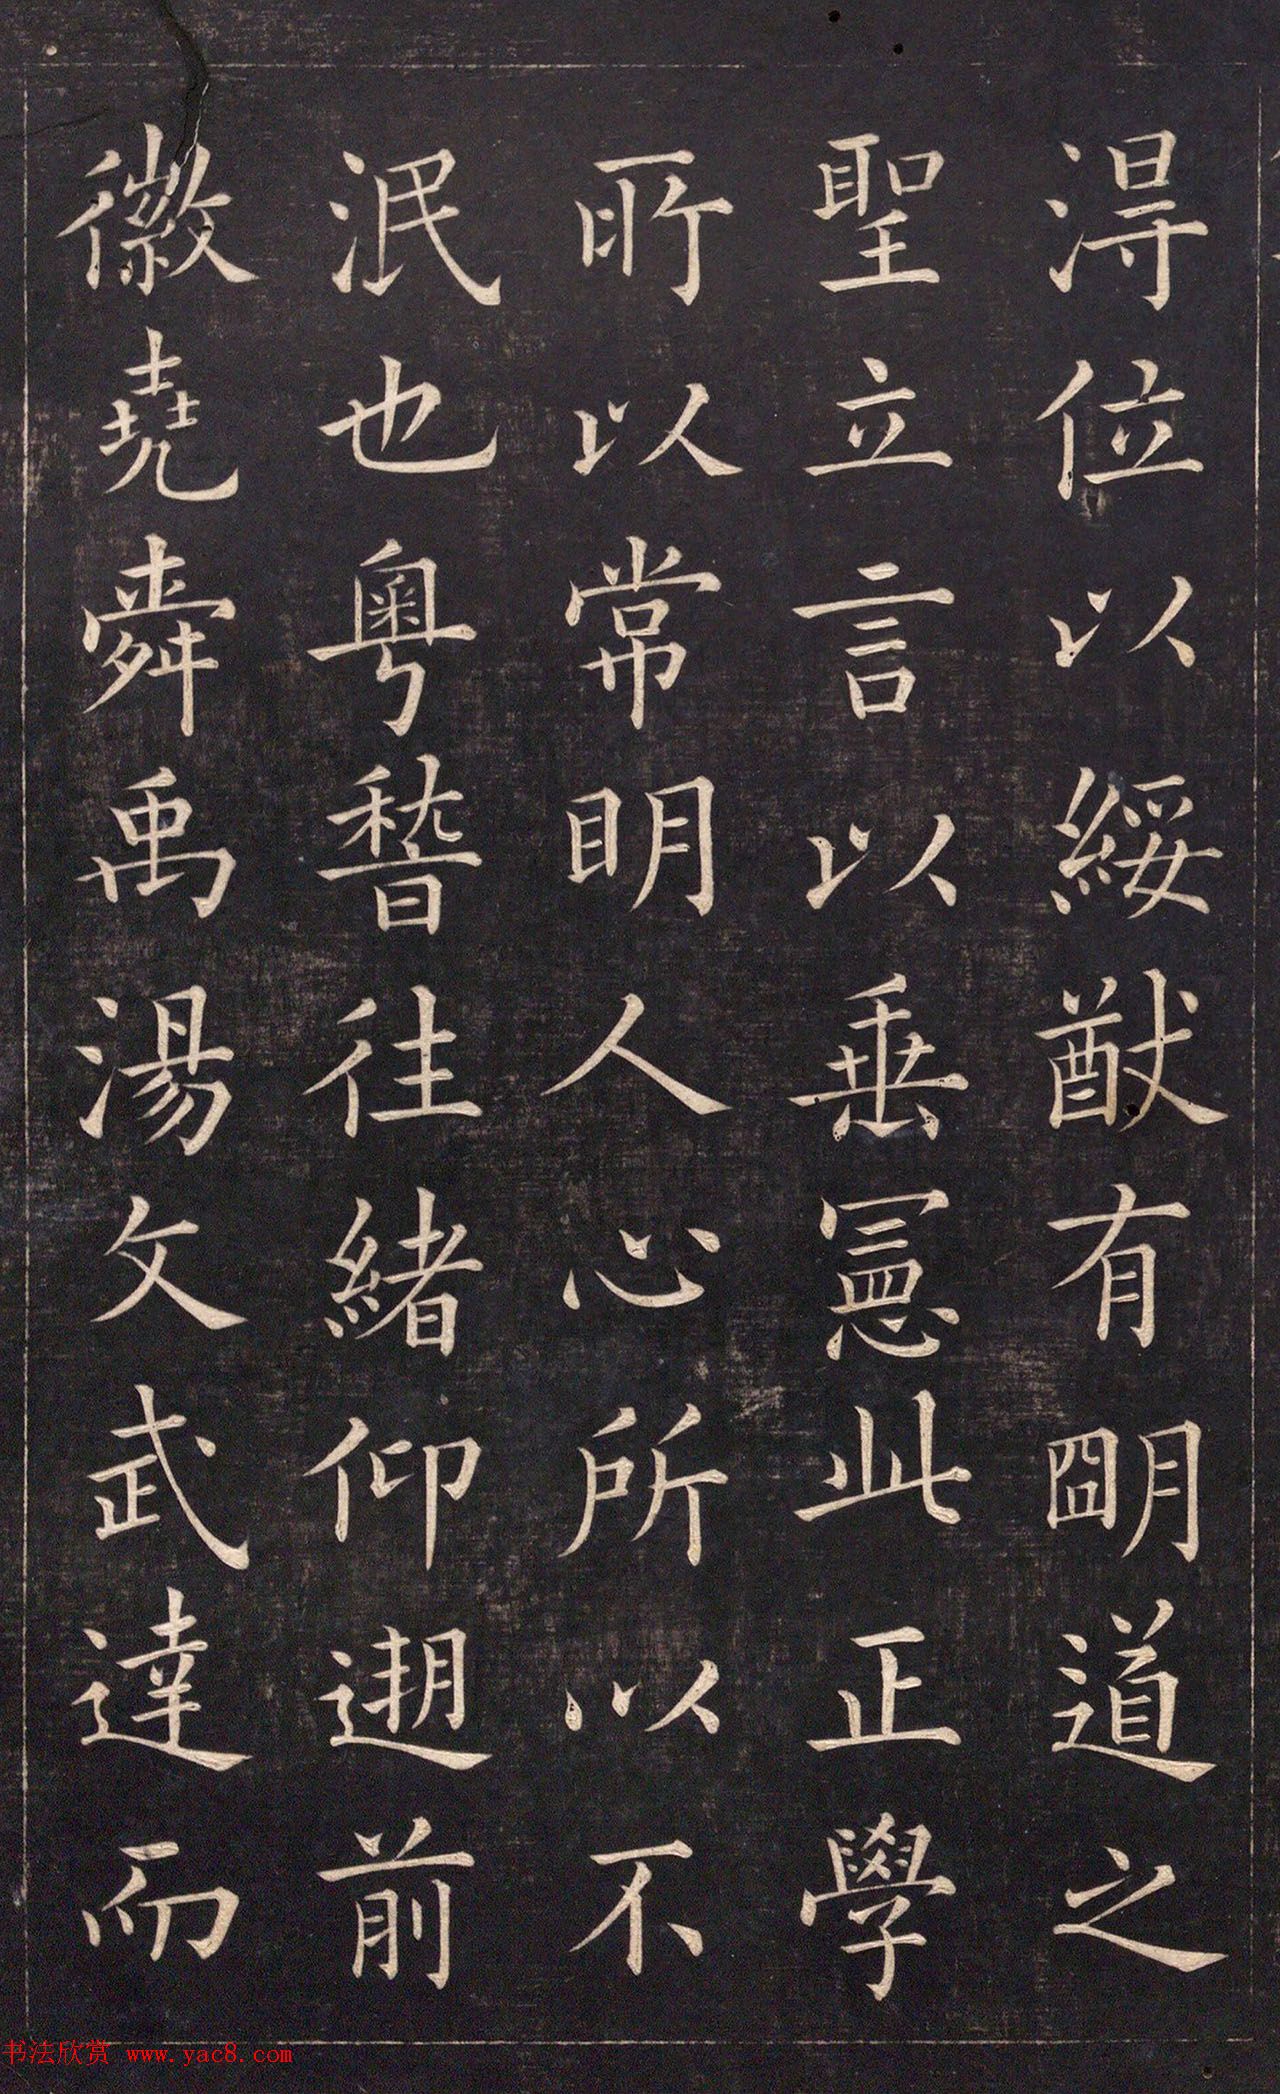 得位以綏猷有明道之
聖立言以垂憲此正學
所以常明人心所以不
泯也粵稽往緒仰遡前
徽堯舜禹湯文武達而
书法欣赏 www.yac8.com